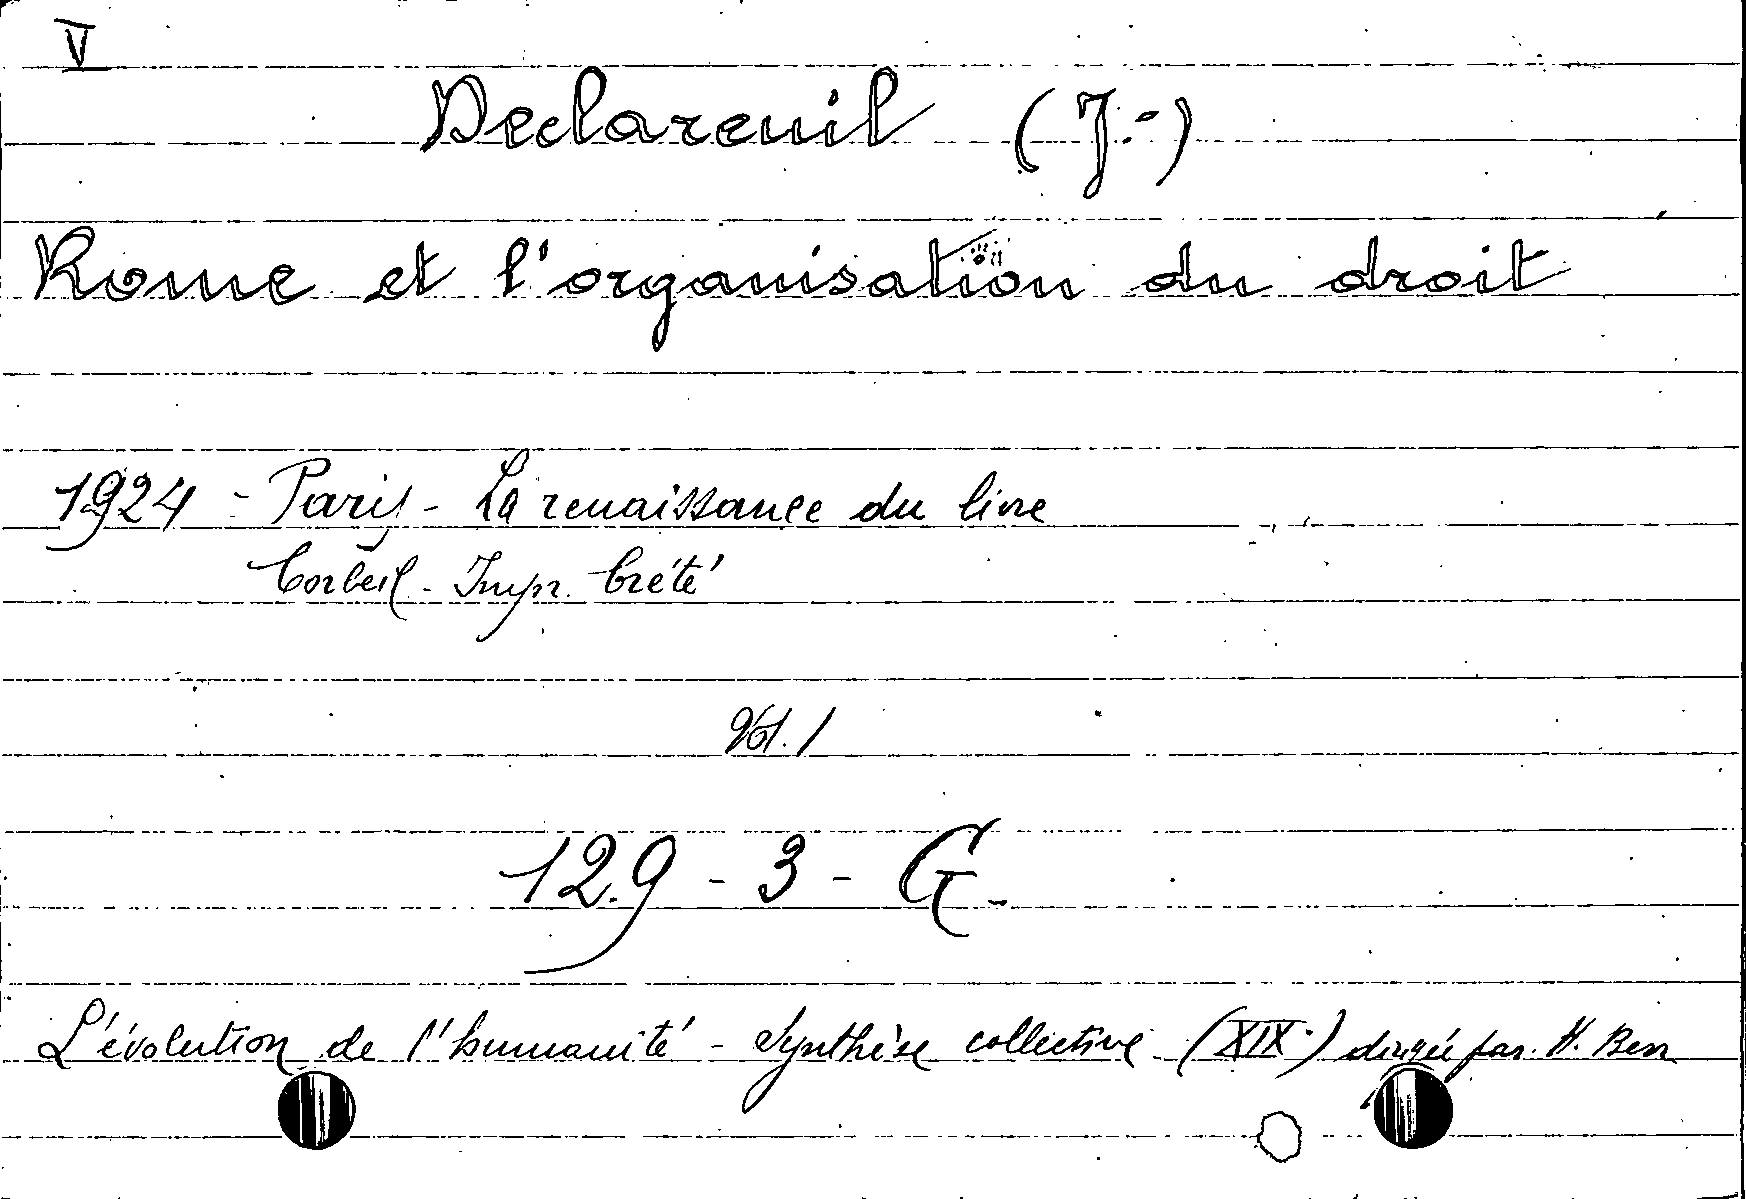 V
Declareuil (J.-)
Rome et l'organisation du droit
1924 - Paris - La renaissance du livre
Corbeil - Impr. Crété
Vol. 1
129 - 3 - G.
L'évolution de l'humanité - Synthèse collective (XIX) dirigée par H. Berr